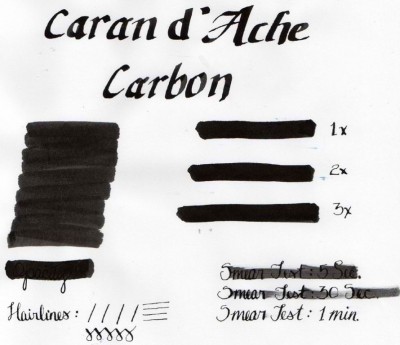 Caran d'Ache
Carbon
1x
2x
3x
Opacity
Smear Test: 5 Sec.
Smear Test: 30 Sec.
Hairlines:
Smear Test: 1 min.